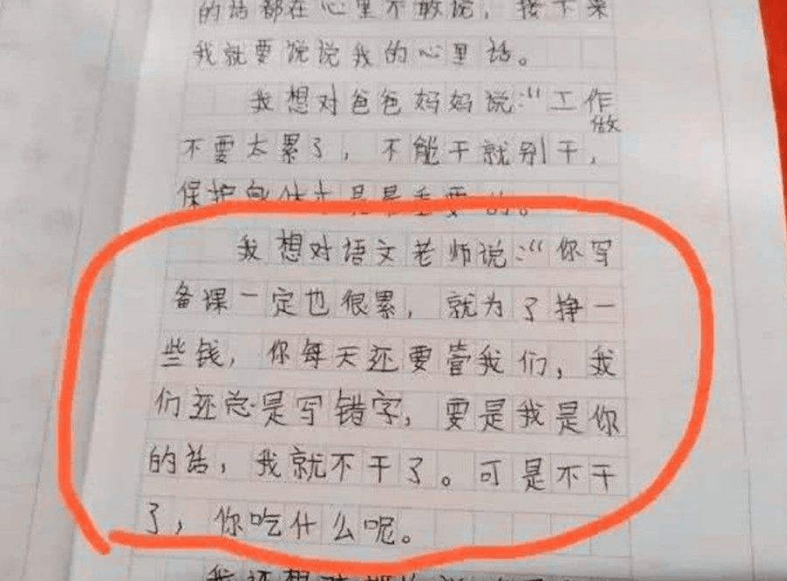 的话都在心里不敢说，接下来
我就要说说我的心里话。
我想对爸爸妈妈说：“工作
做
不要太累了，不能干就别干，
保护身体才是最重要的。
我想对语文老师说：“你写
备课一定也很累，就为了挣一
些钱，你每天还要管我们，我
们还总是写错字，要是我是你
的话，我就不干了。可是不干
了，你吃什么呢。
我还想对